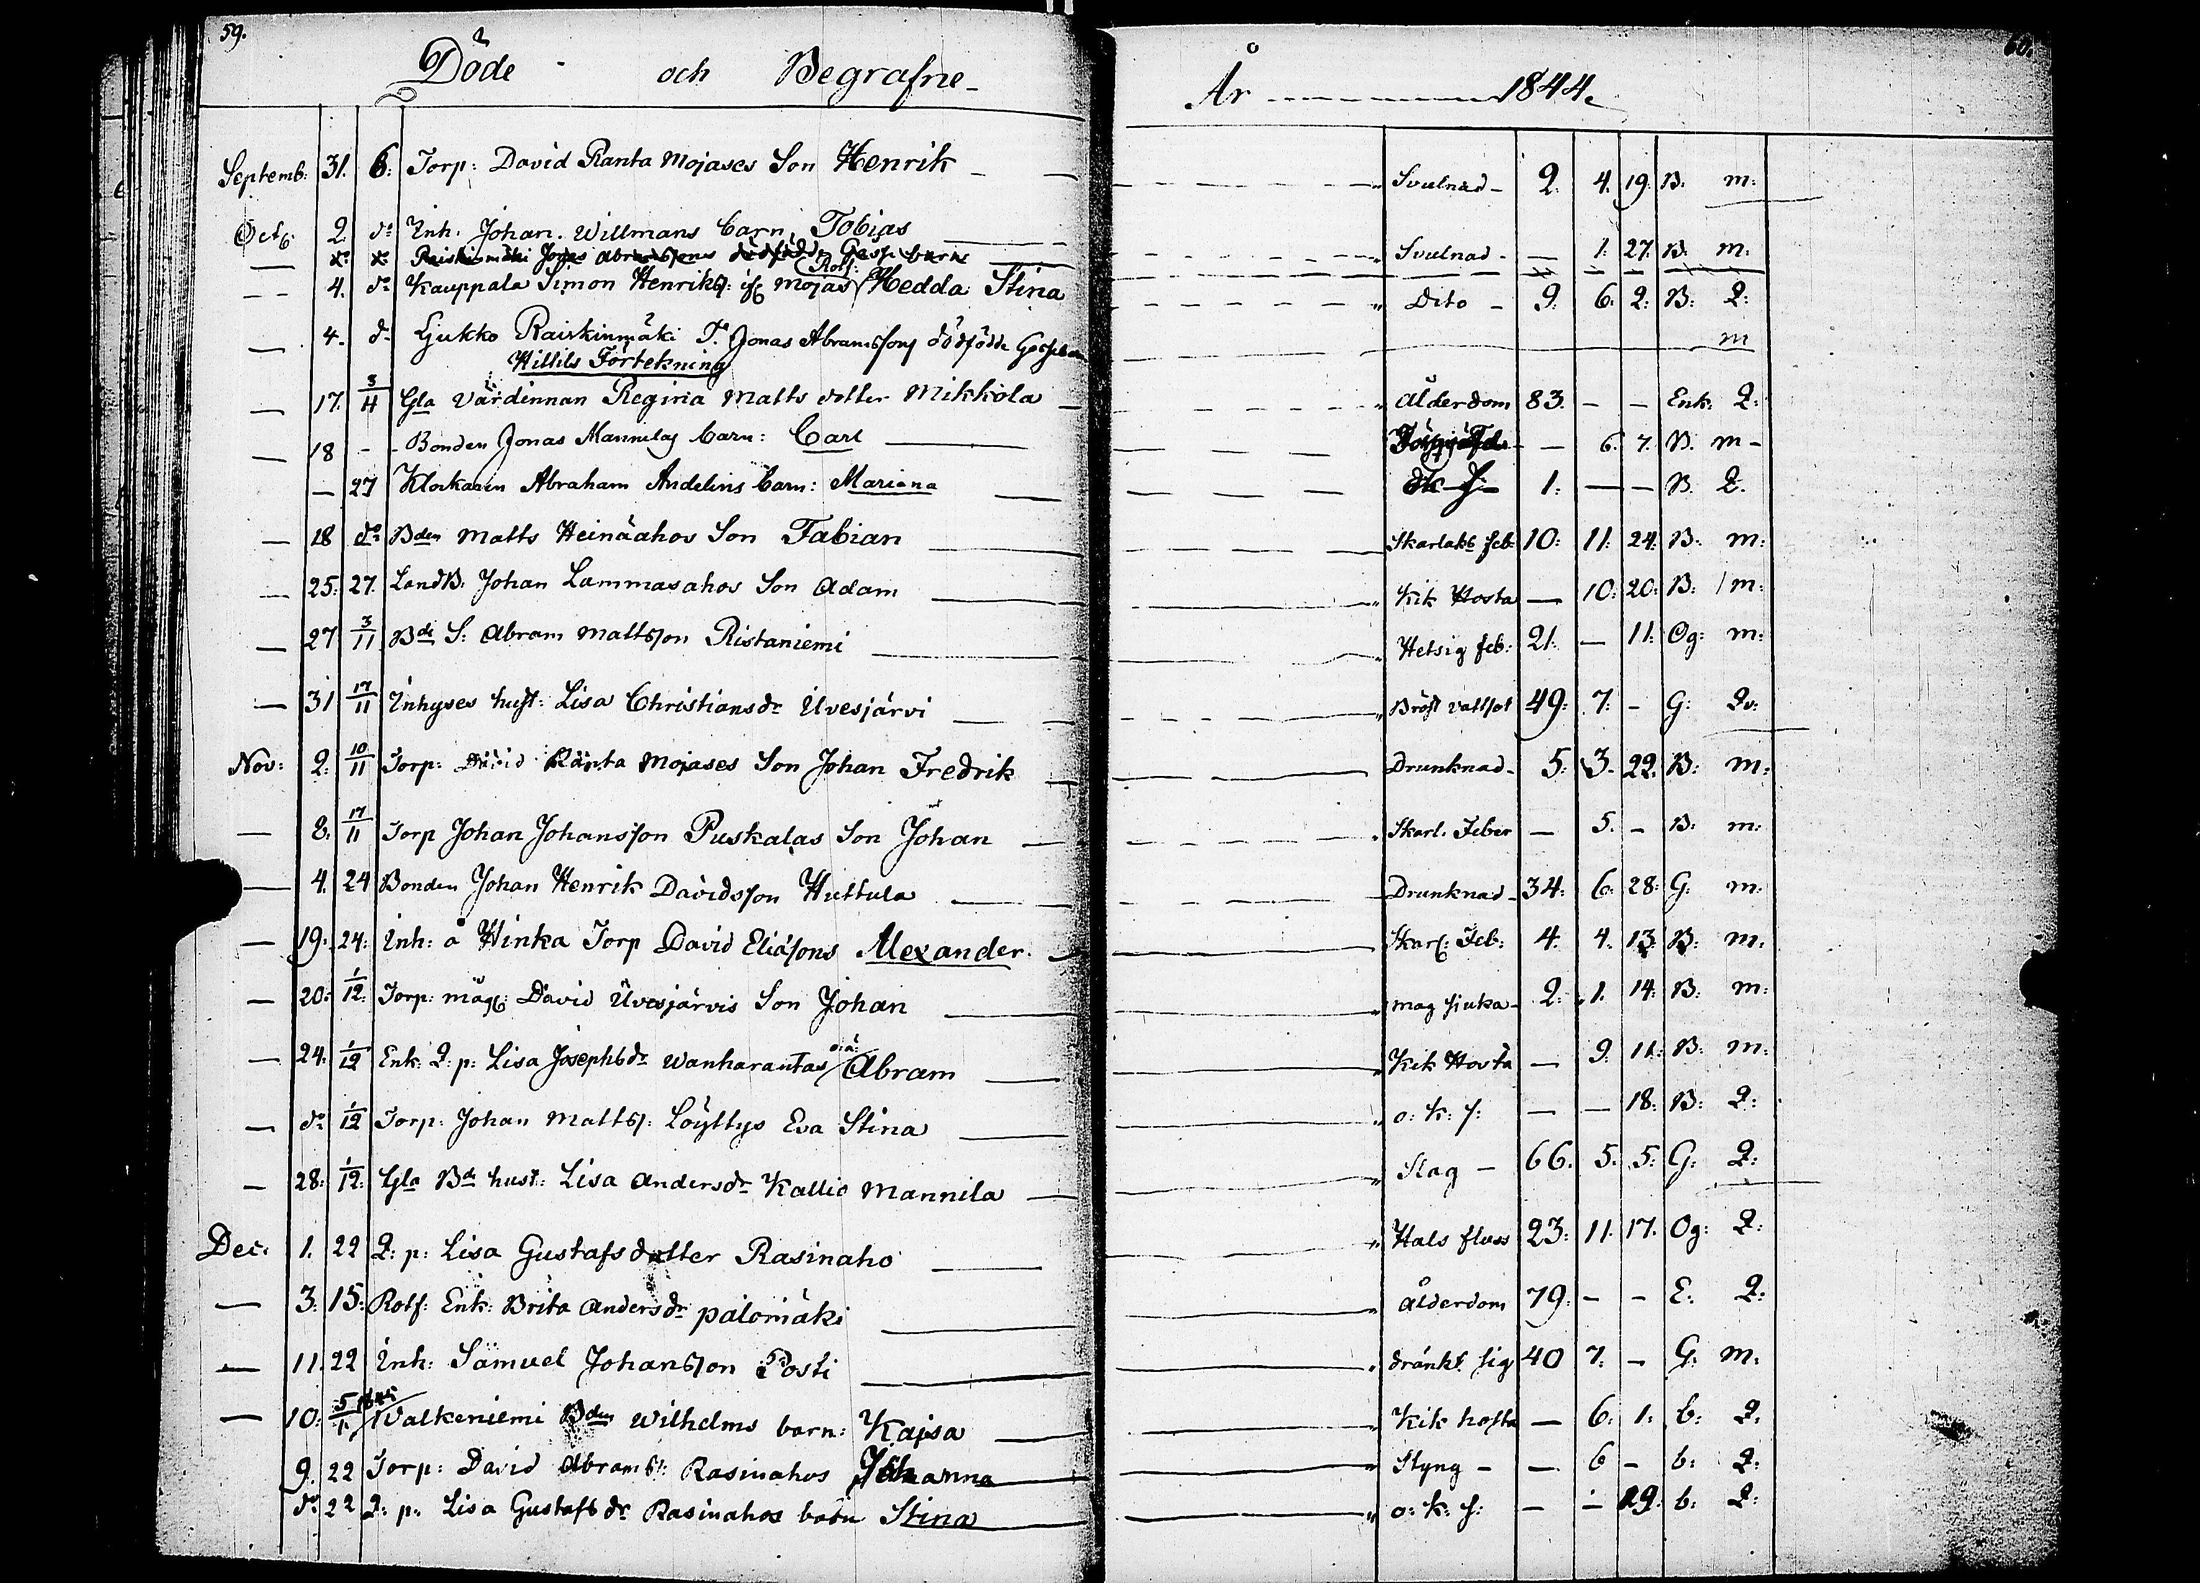 59. 60.
Döde och Begrafne År 1844.
Septemb: 31. 6: Torp: David Ranta Mojases Son Henrik Svulnad 2. 4. 19. B. m:
Octb. 2. do Inh. Johan. Willmans barn, Tobias Svulnad - — 1. 27. B. m:
do do Raiskinmäki Jonas Abramssons dödfödde Gosse barn
4. do Kauppala Simon Henrikss: Mojas Rotf: Hedda Stina Dito - 9. 6. 2. B: Q:
4. d. Ljukko Raiskinmäki T. Jonas Abramssons dödfödde Gossebarn m
Hittils Förtekning
17. 3/11 Gla Värdinnan Regina Matts dotter Mikkola Ålderdom 83. - - Enk: Q:
18 - - Bonden Jonas Mannilas barn: Carl — 6. 7. B. m -
— 27 Klockaren Abraham Andelins barn: Mariana 1: — — B. Q.
18 do Bden Matts Heinäahos Son Fabian Skarlaks feb: 10: 11: 24: B: m:
25: 27. LandB: Johan Lammasahos Son Adam Kik Hosta — 10: 20: B: m:
27 3/11 Bde S: Abram Mattsson Ristaniemi Hetsig feb: 21. — 11: Og: m:
31 17/11 Inhyses hust: Lisa Christiansdr Uvesjärvi Bröst vattsot 49: 7: - G: Qv:
Nov: 2: 10/11 Torp: David Ranta Mojases Son Johan Fredrik Drunknad - 5: 3- 22. B: m:
8. 17/11 Torp Johan Johansson Puskalas Son Johan Skarl. Feber — 5. - B: m:
4. 24 Bonden Johan Henrik Davidsson Huttula Drunknad - 34: 6: 28: G: m:
19. 24: Inh: å Hinka Torp David Eliäsons Alexander. Skarl: Feb: 4. 4. 13: B: m:
20: 1/12: Torp: måg: David Uvesjärvis Son Johan mag sjuka - 2: 1. 14: B: m:
24: 1/12 Enk: Q: p: Lisa Josephsdr Wanharantas oä: Abram Kik Hosta — 9: 11: B: m:
do 1/12 Torp: Johan Mattss: Löyttys Eva Stina o: k: s: — — 18: B: Q:
28: 1/12: Gla Bde hust: Lisa Andersdr Kallio Mannila Slag - 66. 5. 5: G: Q:
Dec: 1. 22 Q: p: Lisa Gustafs dotter Rasinaho Hals fluss 23: 11. 17. Og: Q:
3: 15: Rotf: Enk: Brita Andersdr Palomäki Ålderdom 79: - - E: Q:
11. 22 Inh: Samuel Johansson Posti dränkt sig 40 7: - G: m:
10: 5/1 1845 Valkeniemi Bden Wilhelms barn: Kajsa Kik hosta — 6: 1: b: Q:
9. 22 Torp: David Abramss: Rasinahos Johanna Styng - — 6 - b: Q:
do 22 Q: p: Lisa Gustafsdr Rasinahos barn Stina o: k: s: — - 29: b: Q: